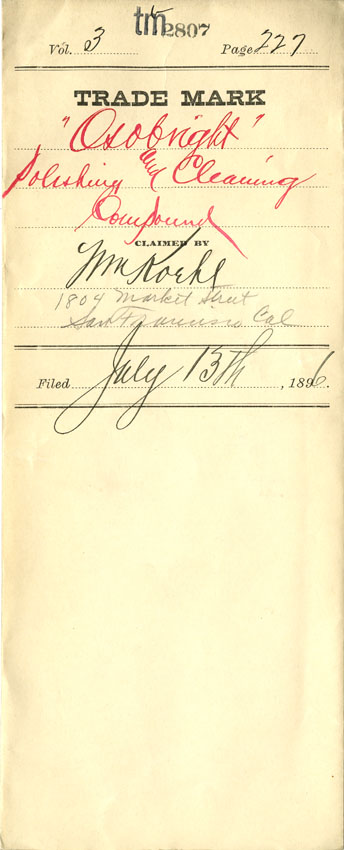 tm 2807
Vol. 3 Page 227
TRADE MARK
"Osobright"
Polishing and Cleaning
Compound
CLAIMED BY
Wm Koehl
1804 Market Street
San Francisco Cal
Filed July 13th, 1896.